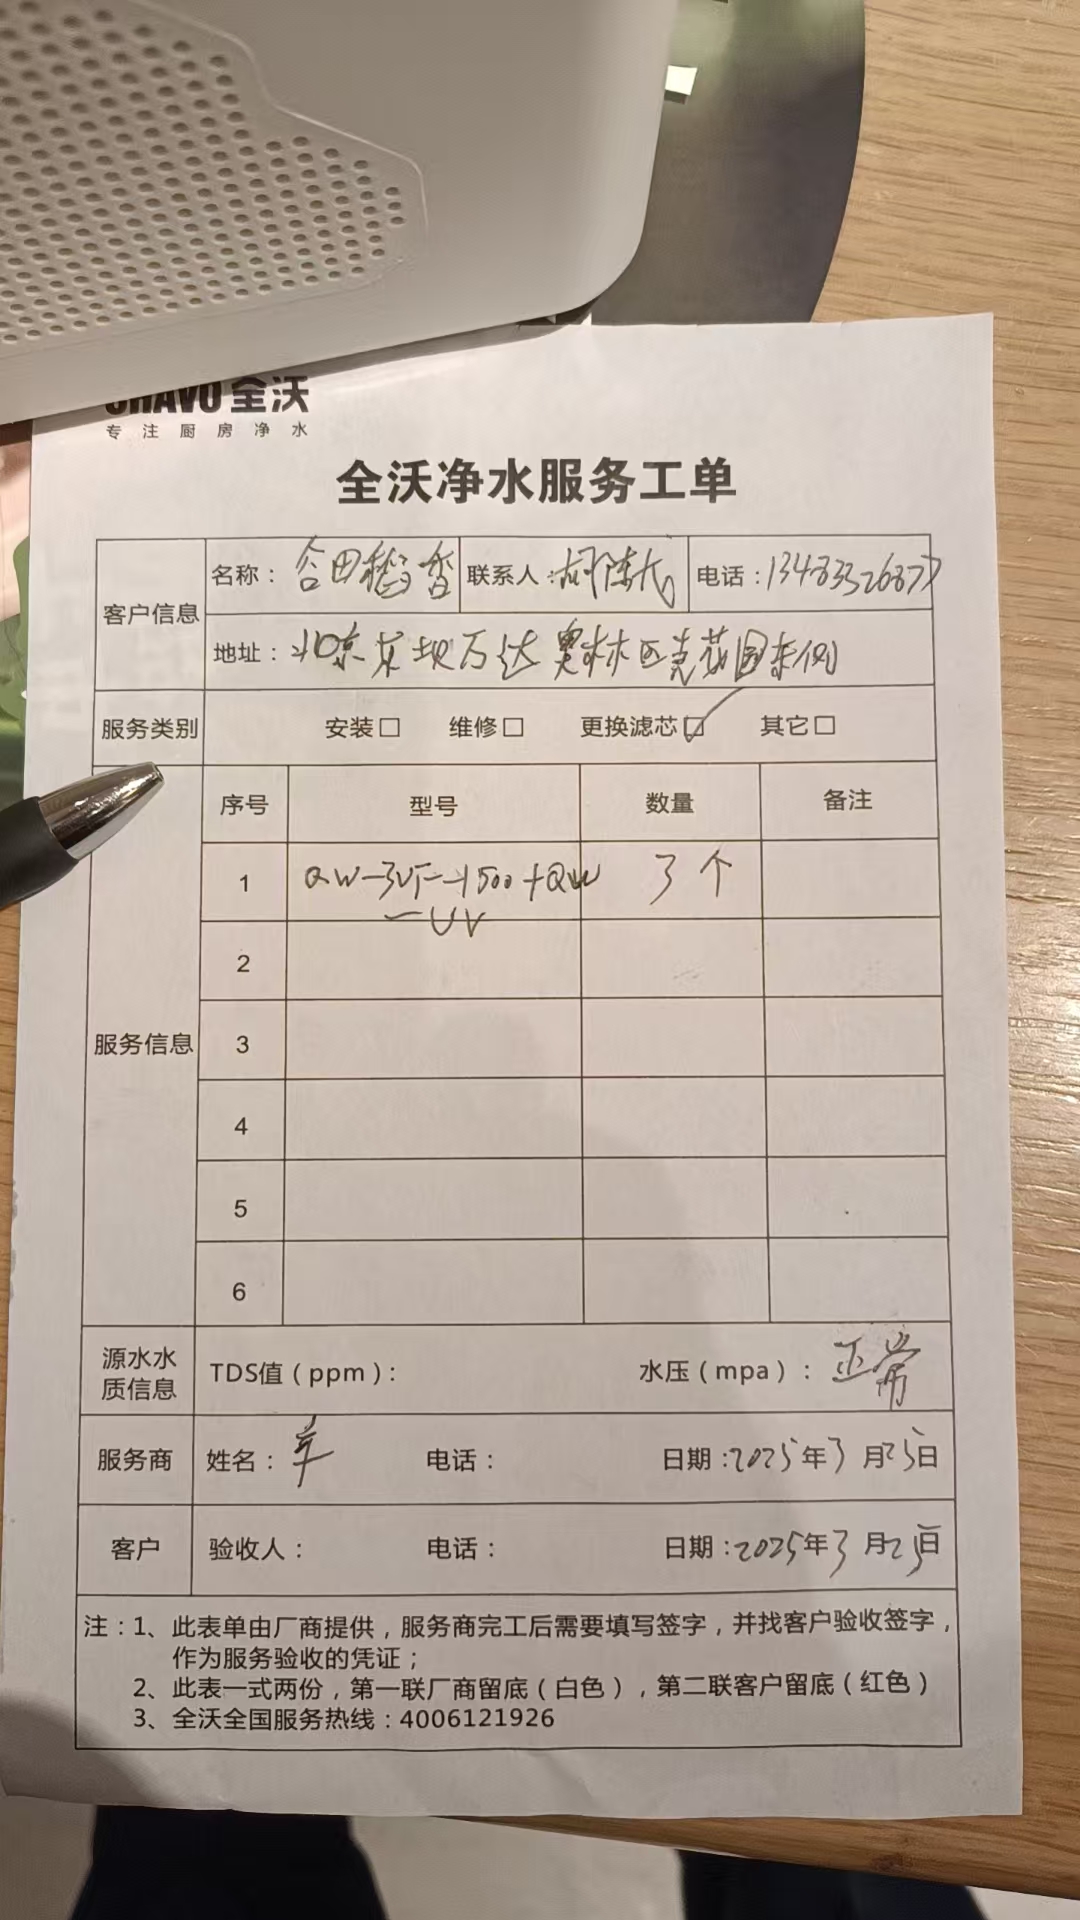 全沃
专注厨房净水
全沃净水服务工单
客户信息
名称：谷田稻香 联系人： 电话：
地址：北京 万达奥林匹克花园东侧
服务类别 安装□ 维修□ 更换滤芯☑ 其它□
服务信息
序号 型号 数量 备注
1 QW-3UF-1500+QW 3个
-UV
2
3
4
5
6
源水水质信息 TDS值（ppm）： 水压（mpa）：正常
服务商 姓名： 电话： 日期：2025年3月25日
客户 验收人： 电话： 日期：2025年3月25日
注：1、此表单由厂商提供，服务商完工后需要填写签字，并找客户验收签字，
作为服务验收的凭证；
2、此表一式两份，第一联厂商留底（白色），第二联客户留底（红色）
3、全沃全国服务热线：4006121926